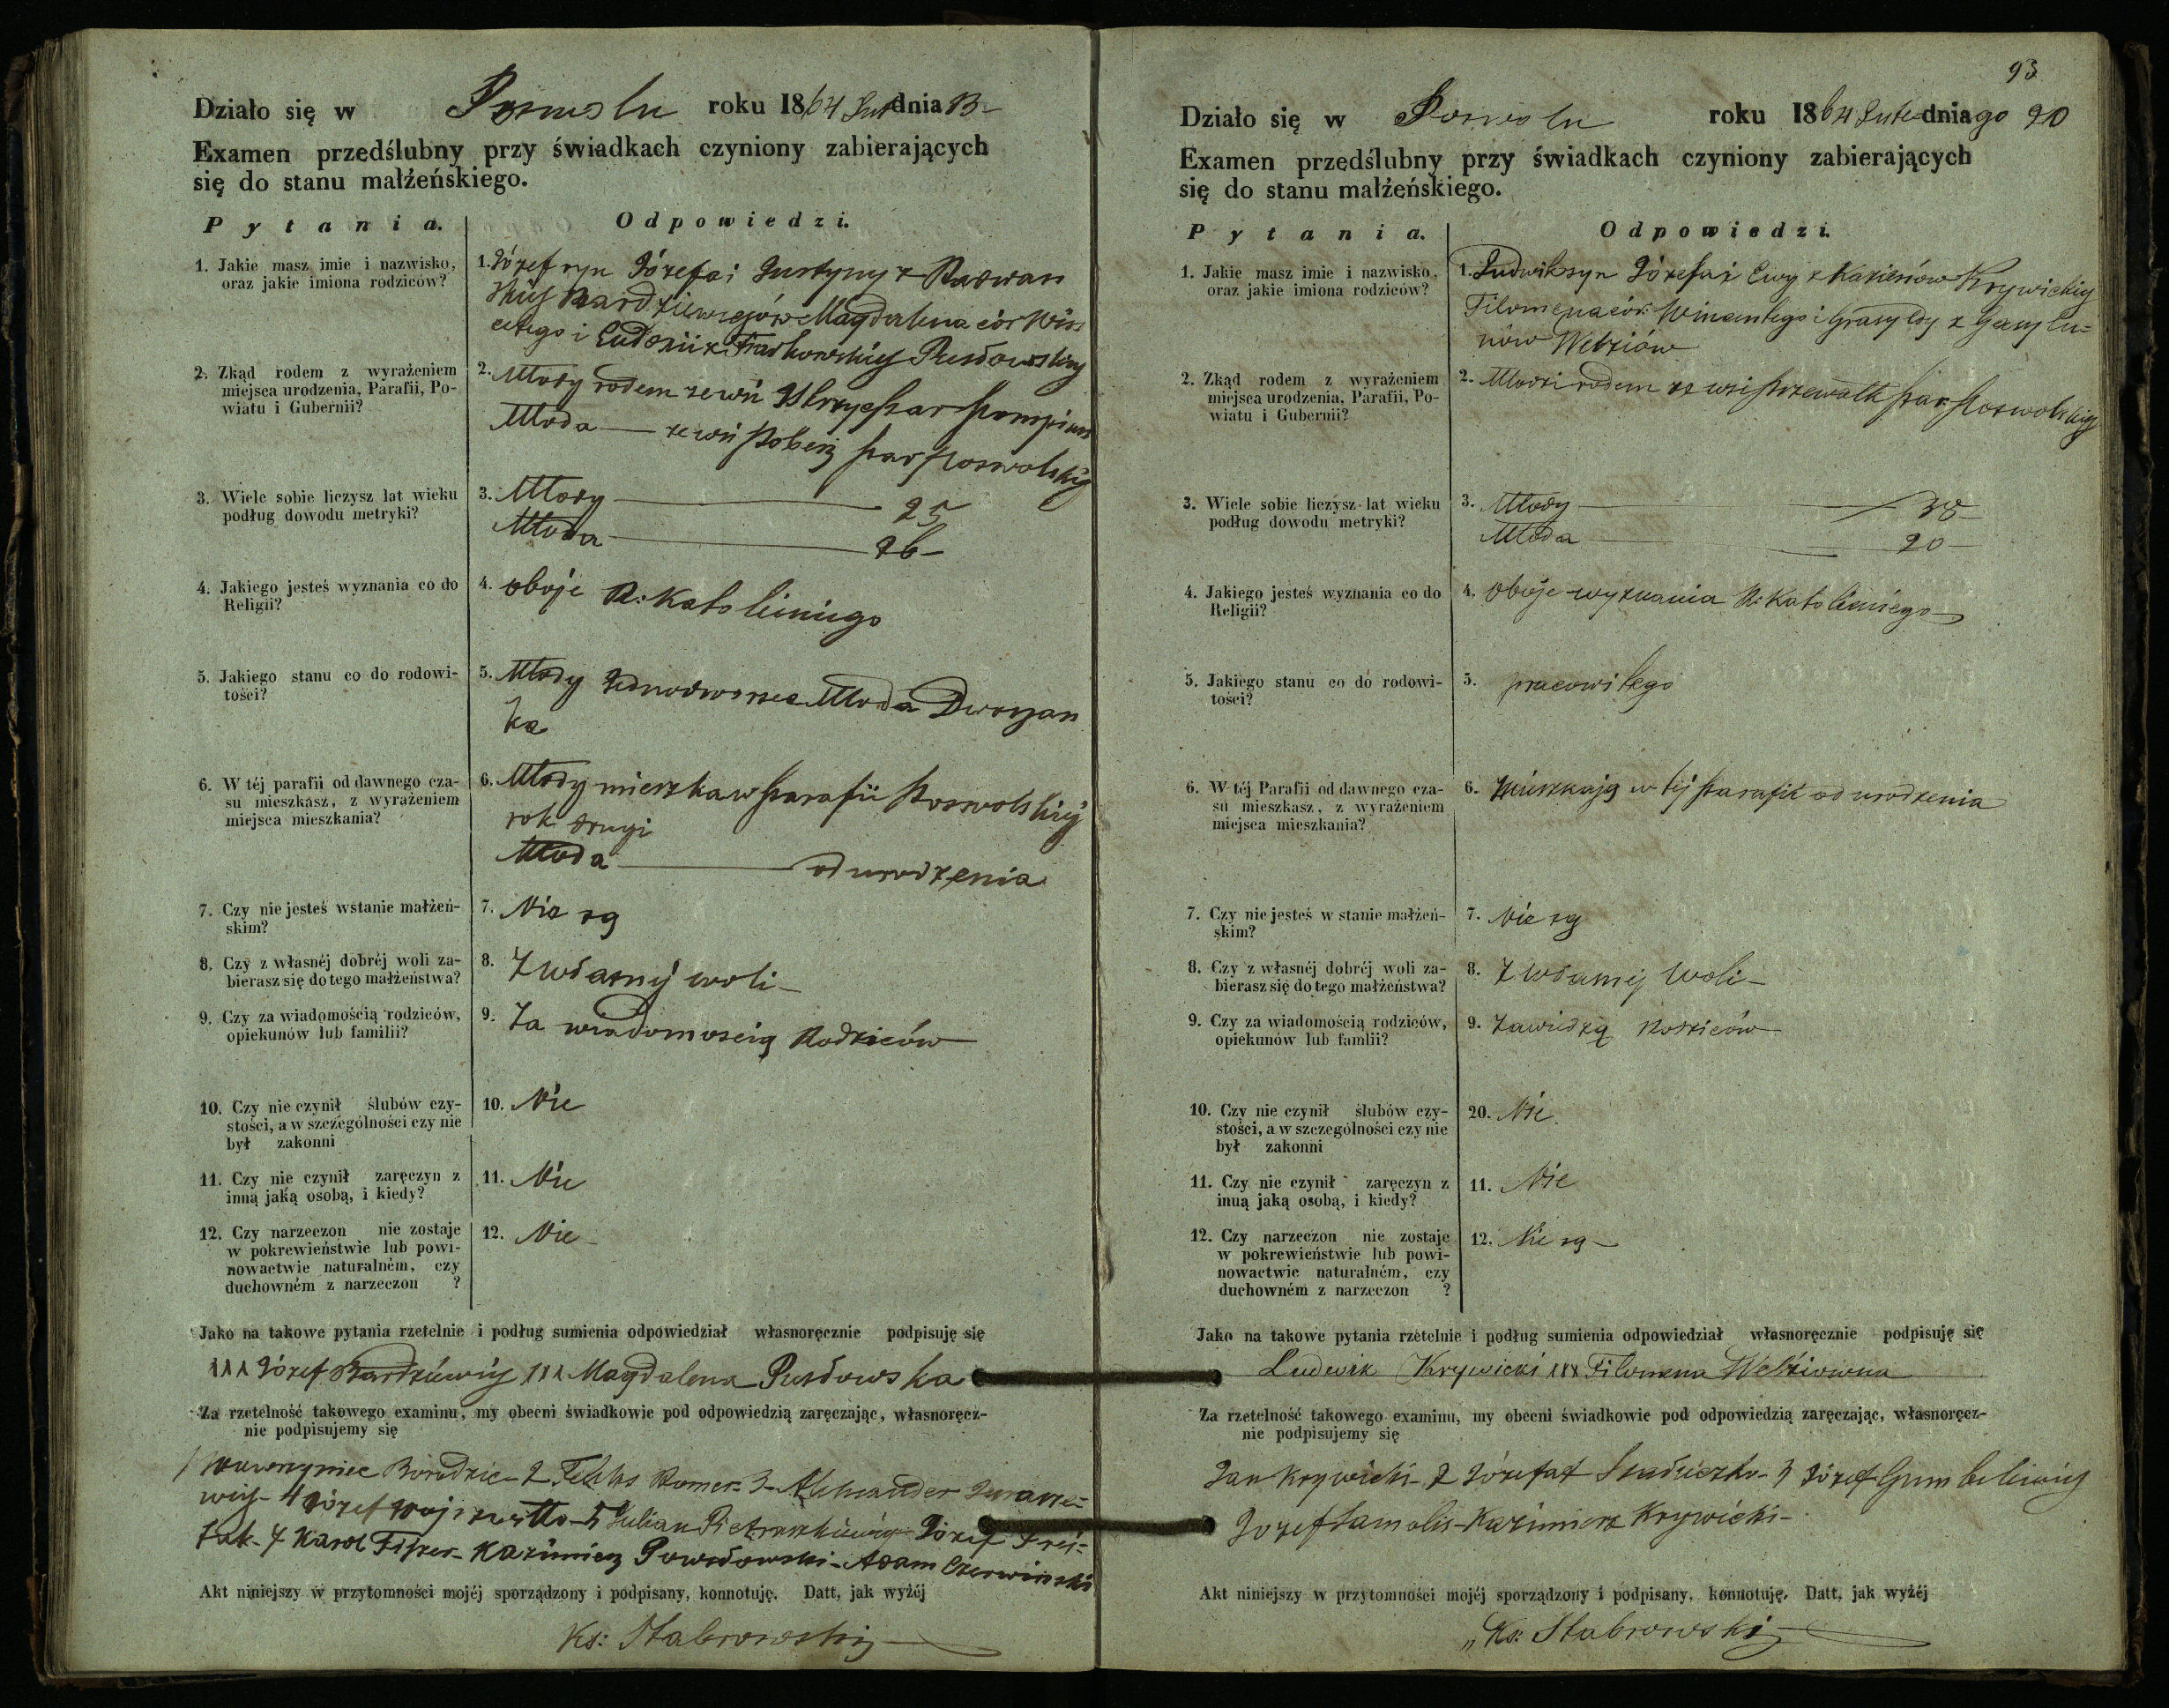 Działo się w Poswolu roku 1864 Lut dnia 13
Examen przedślubny przy świadkach czyniony zabierających
się do stanu małżeńskiego.
Pytania. Odpowiedzi.
1. Jakie masz imie i nazwisko,
oraz jakie imiona rodziców?
1. Józef syn Józefa i Justyny z
Magdalena cór Win
centego i Eudoxii z
2. Zkąd rodem z wyrażeniem
miejsca urodzenia, Parafii, Po-
wiatu i Gubernii?
2. Młody rodem ze wsi par
Młoda — ze wsi par Poswolskiej
3. Wiele sobie liczysz lat wieku
podług dowodu metryki?
3. Młody — 25
Młoda — 26 —
4. Jakiego jesteś wyznania co do
Religii?
4. oboje R: Katolickiego
5. Jakiego stanu co do rodowi-
tości?
5. Młody Jednodworzec Młoda Dworzan
ka
6. W téj parafii od dawnego cza-
su mieszkasz, z wyrażeniem
miejsca mieszkania?
6. Młody mieszka w Parafii Poswolskiej
rok drugi
Młoda — od urodzenia
7. Czy nie jesteś wstanie małżeń-
skim?
7. Nie są
8. Czy z własnéj dobréj woli za-
bierasz się do tego małżeństwa?
8. Z własnej woli —
9. Czy za wiadomością rodziców,
opiekunów lub familii?
9. Za wiadomoscią Rodziców
10. Czy nie czynił ślubów czy-
stości, a w szczególności czy nie
był zakonni
10. Nie
11. Czy nie czynił zaręczyn z
inną jaką osobą, i kiedy?
11. Nie
12. Czy narzeczon nie zostaje
w pokrewieństwie lub powi-
nowactwie naturalném, czy
duchowném z narzeczon ?
12. Nie —
Jako na takowe pytania rzetelnie i podług sumienia odpowiedział własnoręcznie podpisuję się
xxx Józef xxx Magdalena Pusłowska
Za rzetelność takowego examinu, my obecni świadkowie pod odpowiedzią zaręczając, własnoręcz-
nie podpisujemy się
Wawrzyniec 2 Feliks Romer 3 Alexander
wicz - 4 Józef 5 Julian Pietraszkiewicz Józef
7 Karol Kazimierz Adam Czerwinski
Akt niniejszy w przytomności mojéj sporządzony i podpisany, konnotuję. Datt, jak wyżéj
Ks: Stabrowski
93
Działo się w Poswolu roku 1864 Lute dnia go 20
Examen przedślubny przy świadkach czyniony zabierających
się do stanu małżeńskiego.
Pytania. Odpowiedzi.
1. Jakie masz imie i nazwisko,
oraz jakie imiona rodziców?
1. Ludwik syn Józefa i Ewy z Krywickiy
Filomena cór: Wincentego i Grasyldy z
nów Wełziów
2. Zkąd rodem z wyrażeniem
miejsca urodzenia, Parafii, Po-
wiatu i Gubernii?
2. Młodzi rodem ze wsi par Poswolskiej
3. Wiele sobie liczysz lat wieku
podług dowodu metryki?
3. Młody — 38 —
Młoda — 20 —
4. Jakiego jesteś wyznania co do
Religii?
4. Oboje wyznania R: Katolickiego
5. Jakiego stanu co do rodowi-
tości?
5. pracowitego
6. W téj Parafii od dawnego cza-
su mieszkasz, z wyrażeniem
miejsca mieszkania?
6. Mieszkają w tej Parafii od urodzenia
7. Czy nie jesteś w stanie małżeń-
skim?
7. Nie są
8. Czy z własnéj dobréj woli za-
bierasz się do tego małżeństwa?
8. Z własnej Woli —
9. Czy za wiadomością rodziców,
opiekunów lub famlii?
9. Za wiedzą Rodziców
10. Czy nie czynił ślubów czy-
stości, a w szczególności czy nie
był zakonni
20. Nie
11. Czy nie czynił zaręczyn z
inuą jaką osobą, i kiedy?
11. Nie
12. Czy narzeczon nie zostaje
w pokrewieństwie lub powi-
nowactwie naturalném, czy
duchowném z narzeczon ?
12. Nie są —
Jako na takowe pytania rzetelnie i podług sumienia odpowiedział własnoręcznie podpisuję się
Ludwik Krywicki xxx Filomena Wełziowna
Za rzetelność takowego examinu, my obecni świadkowie pod odpowiedzią zaręczając, własnoręcz-
nie podpisujemy się
Jan Krywicki - 2 Józefat 3 Józef Gumbelewicz
Jozef Kazimierz Krywicki -
Akt niniejszy w przytomności mojéj sporządzony i podpisany, konnotuję. Datt, jak wyżéj
Ks: Stabrowski